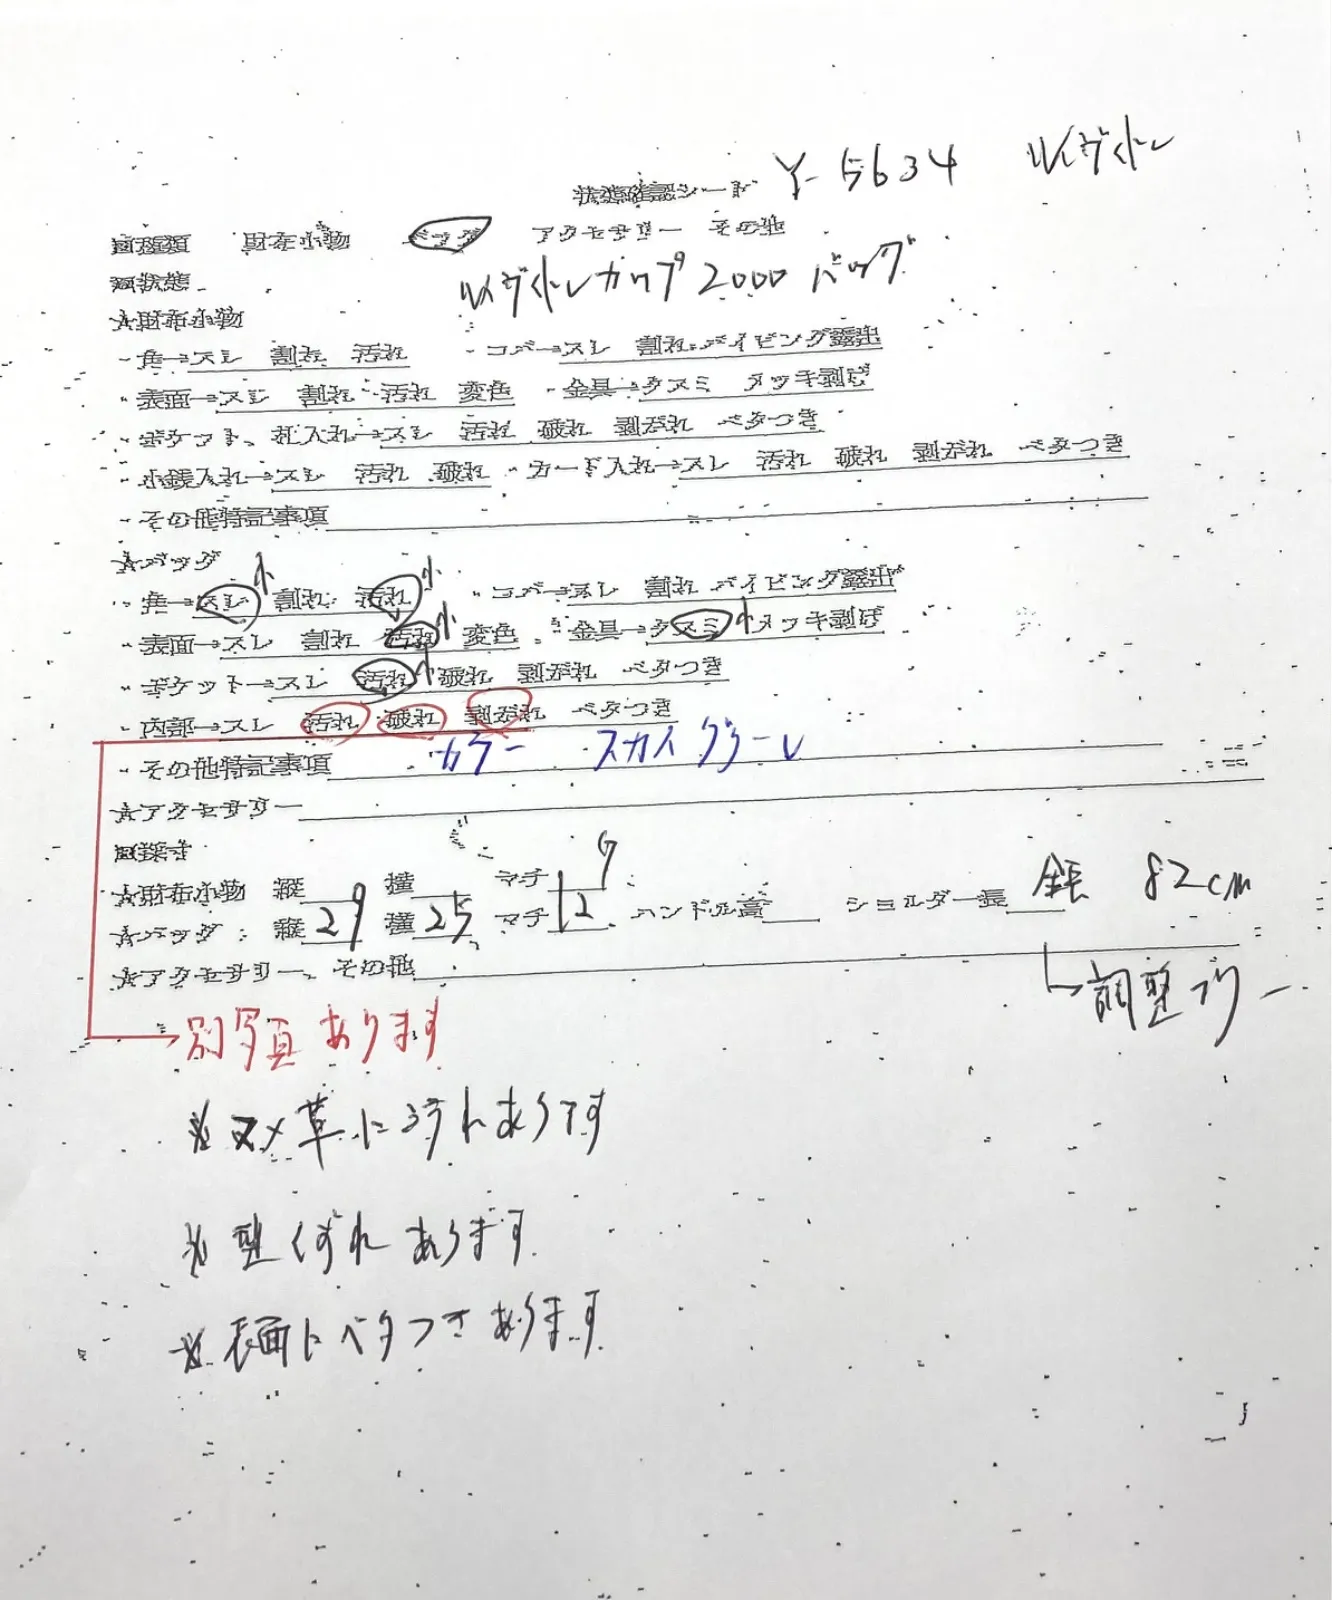 状態確認シート Y-5634 ルイヴィトン
□種類 財布小物 バッグ アクセサリー その他
□状態
ルイヴィトンカップ2000 バッグ
★財布小物
・角→スレ 割れ 汚れ ・コバ→スレ 割れ パイピング露出
・表面→スレ 割れ 汚れ 変色 ・金具→クスミ メッキ剥げ
・ポケット、札入れ→スレ 汚れ 破れ 剥がれ ベタつき
・小銭入れ→スレ 汚れ 破れ ・カード入れ→スレ 汚れ 破れ 剥がれ ベタつき
・その他特記事項
★バッグ
・角→スレ 小 割れ 汚れ 小 ・コバ→スレ 割れ パイピング露出
・表面→スレ 割れ 汚れ 小 変色 ・金具→クスミ 小 メッキ剥げ
・ポケット→スレ 汚れ 小 破れ 剥がれ ベタつき
・内部→スレ 汚れ 破れ 剥がれ ベタつき
・その他特記事項 カラー スカイグリーン
★アクセサリー
□採寸
★財布小物 縦 横 マチ
★バッグ : 縦 29 横 25 マチ 12 ハンドル高 ショルダー長 全長 82cm
★アクセサリー、その他
調整フリー
別写真あります
※ヌメ革に汚れあります
※型くずれあります
※表面にベタつきあります